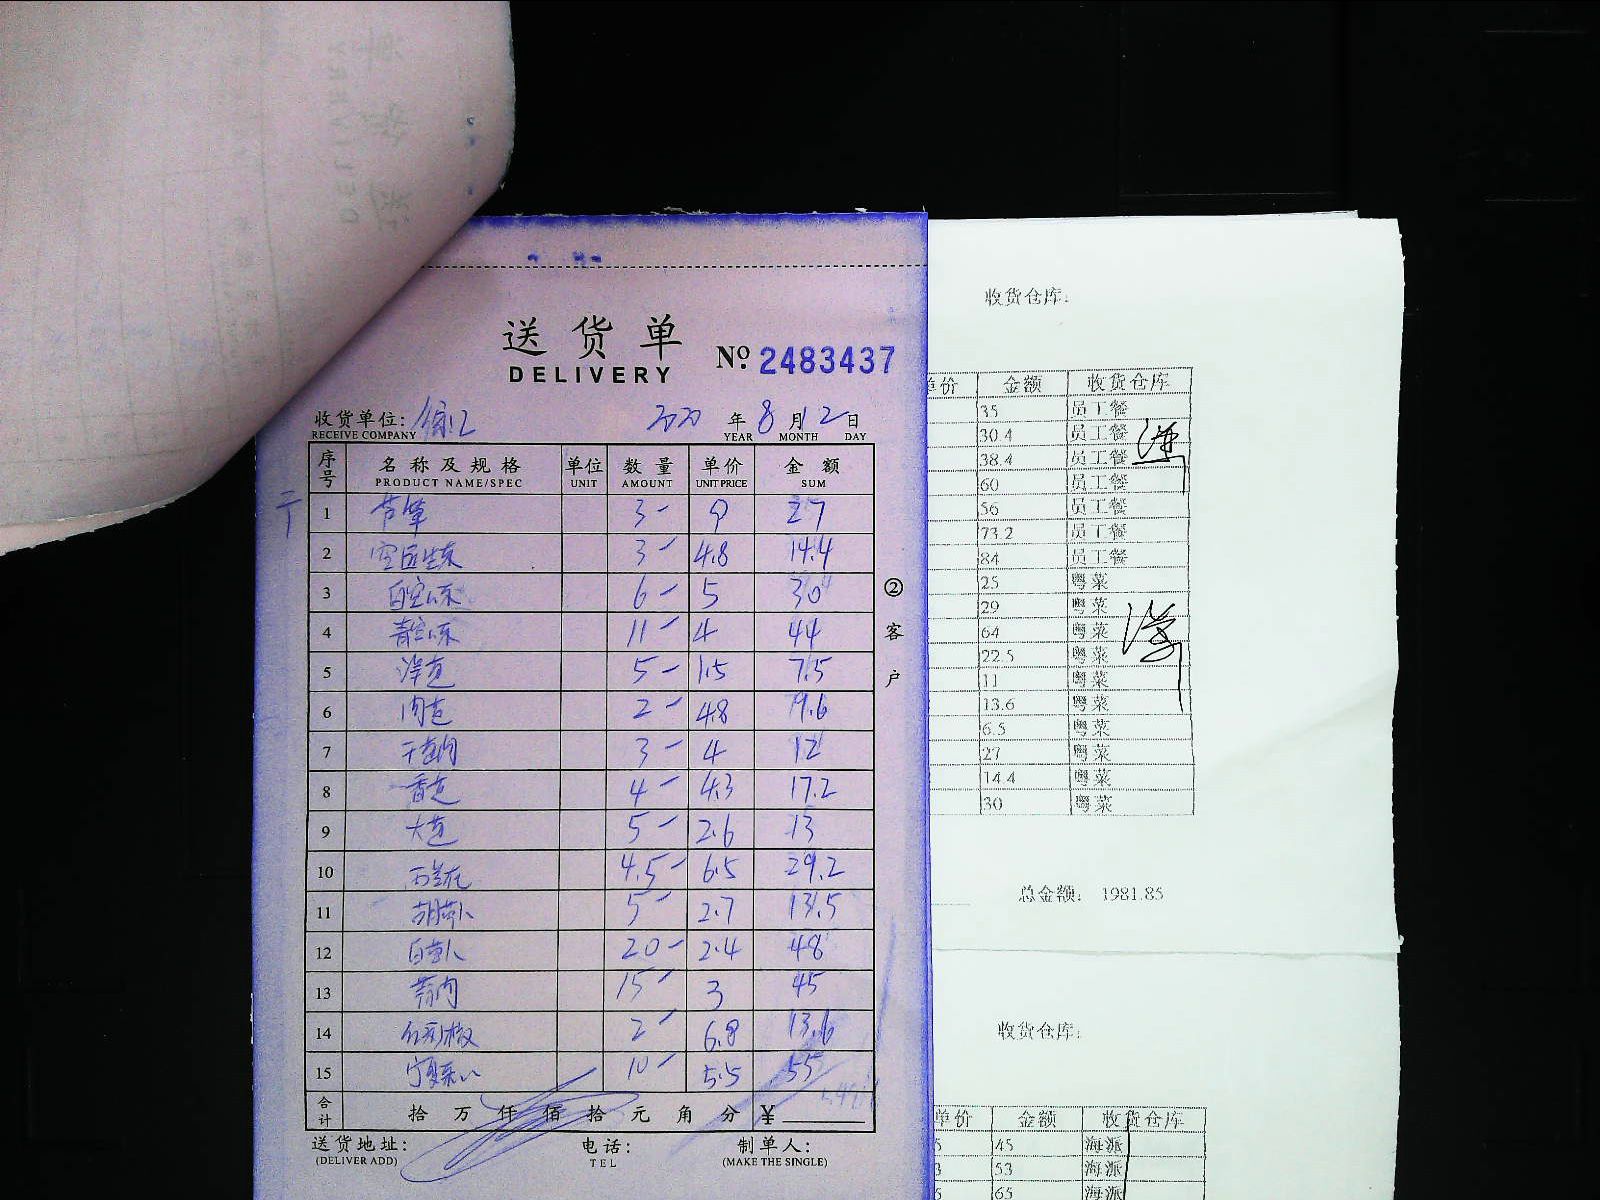 送货单
DELIVERY
№ 2483437
收货单位: 徐汇 2020 年 8 月 12 日
RECEIVE COMPANY YEAR MONTH DAY
序号 名称及规格 单位 数量 单价 金额
PRODUCT NAME/SPEC UNIT AMOUNT UNIT PRICE SUM
1 3- 9 27
2 3- 4.8 14.4
3 6- 5 30
4 11- 4 44
5 洋葱 5- 1.5 7.5
6 肉葱 2- 4.8 9.6
7 干葱肉 3- 4 12
8 香葱 4- 4.3 17.2
9 大葱 5- 2.6 13
10 西兰花 4.5- 6.5 29.2
11 胡萝卜 5- 2.7 13.5
12 白萝卜 20- 2.4 48
13 15- 3 45
14 红彩椒 2- 6.8 13.6
15 10- 5.5 55
合计 拾 万 仟 佰 拾 元 角 分 ¥
送货地址: 电话: 制单人:
(DELIVER ADD) TEL (MAKE THE SINGLE)
②客户
收货仓库:
单价 金额 收货仓库
35 员工餐
30.4 员工餐
38.4 员工餐
60 员工餐
56 员工餐
73.2 员工餐
84 员工餐
25 粤菜
29 粤菜
64 粤菜
22.5 粤菜
11 粤菜
13.6 粤菜
6.5 粤菜
27 粤菜
14.4 粤菜
30 粤菜
总金额: 1981.85
收货仓库:
单价 金额 收货仓库
45 海派
53 海派
65 海派